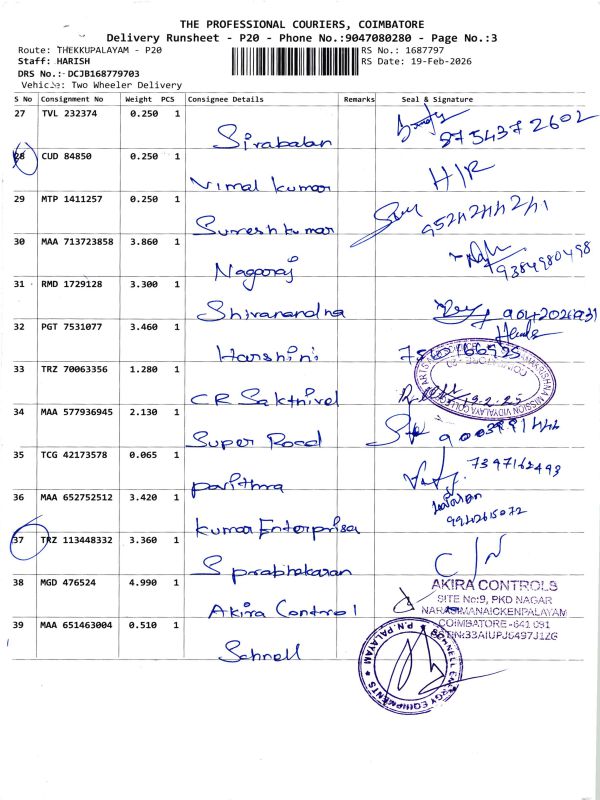 THE PROFESSIONAL COURIERS, COIMBATORE
Delivery Runsheet - P20 - Phone No.:9047080280 - Page No.:3
Route: THEKKUPALAYAM - P20
RS No.: 1687797
Staff: HARISH
RS Date: 19-Feb-2026
DRS No.: DCJB168779703
Vehicle: Two Wheeler Delivery
S No Consignment No Weight PCS Consignee Details Remarks Seal & Signature
27 TVL 232374 0.250 1
Sirabalan 8754372602
28 CUD 84850 0.250 1
Vimal Kumar H/R
29 MTP 1411257 0.250 1
Sureshkumar
30 MAA 713723858 3.860 1
Nagaraj 9384980498
31 RMD 1729128 3.300 1
Shivanandha
32 PGT 7531077 3.460 1
Harshini
33 TRZ 70063356 1.280 1
CR Sakthivel
34 MAA 577936945 2.130 1
Super Road
35 TCG 42173578 0.065 1
Pavithra 7397162493
36 MAA 652752512 3.420 1
Kumar Enterprisa 9942615072
37 TRZ 113448332 3.360 1
S prabhakaran C/N
38 MGD 476524 4.990 1
Akira Control
AKIRA CONTROLS
SITE No:9, PKD NAGAR
NARASIMANAICKENPALAYAM
COIMBATORE-641 031
39 MAA 651463004 0.510 1
Schnell
SCHNELL ENERGY EQUIPMENTS
P.N. PALAYAM